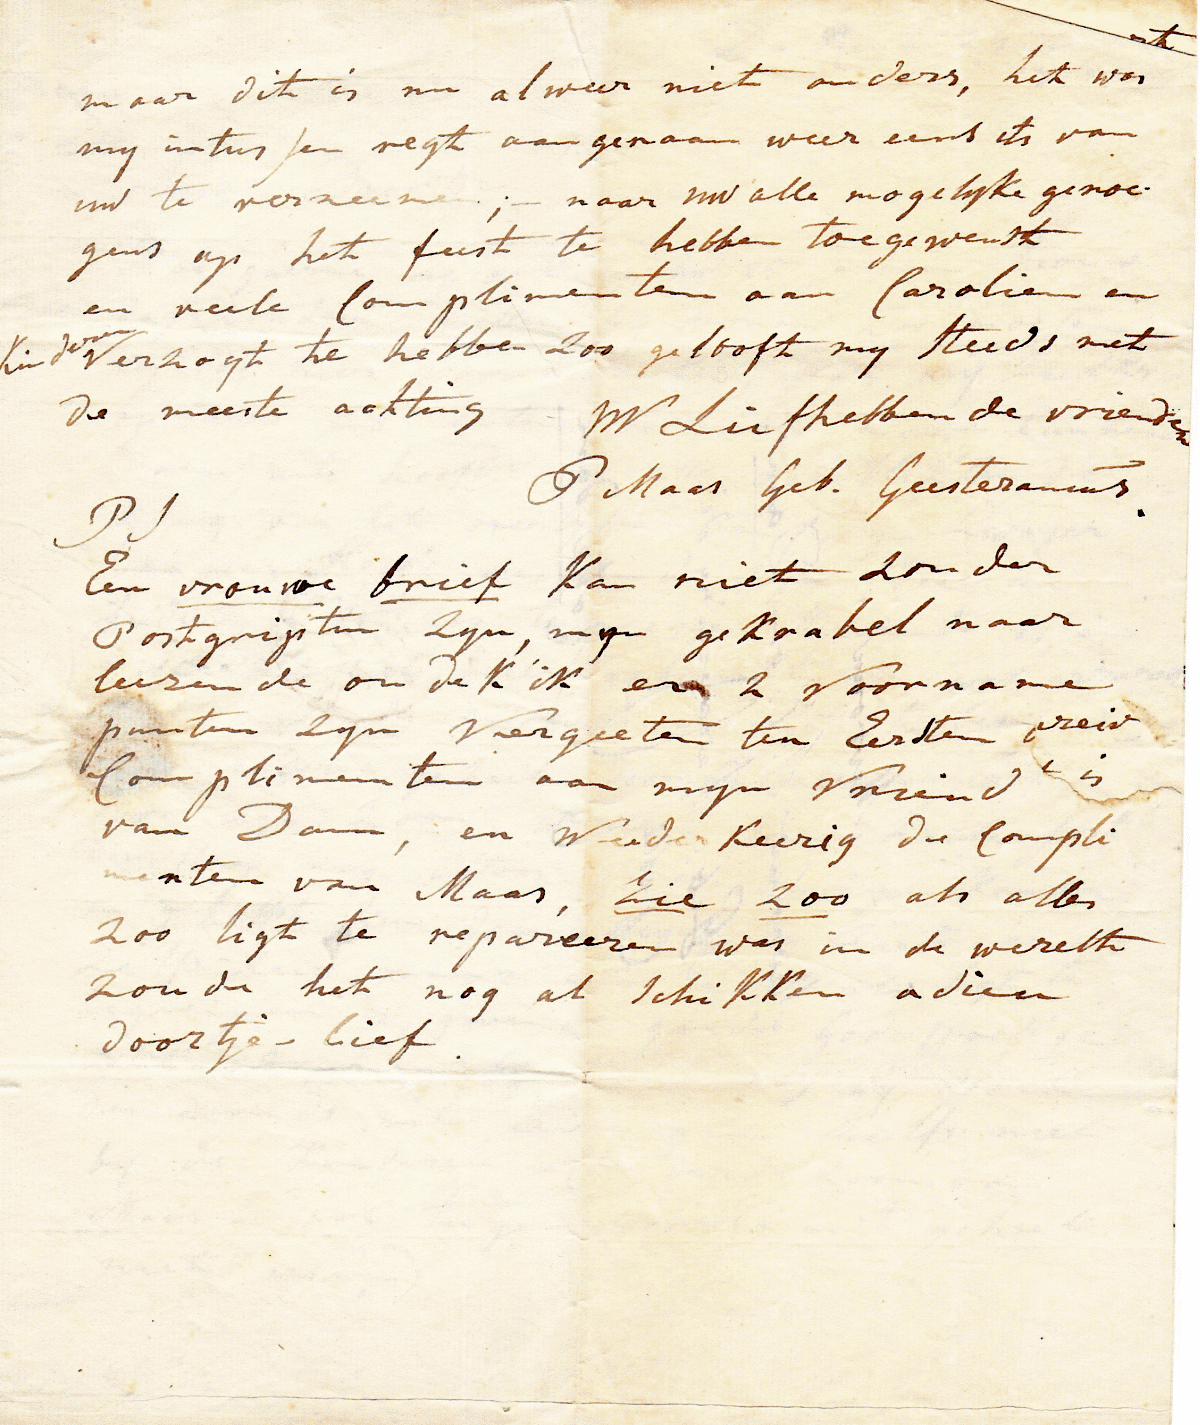 maar dit is nu al weer niet anders, het was
my intussen regt aangenaam weer eens its van
uw te verneemen ;– naar uw alle mogelyke genoe-
gens op het feest te hebben toegewenst
en veele Complimenten aan Carolien en
Kinderen Verzogt te hebben zoo gelooft my steeds met
de meeste achting UW Liefhebbende vriendin
P Maas Geb. Geesteranus.
PS
Een vrouwe brief Kan niet zonder
Postgripten zyn, myn geKrabel naar
leezende ondeK iK er 2 Voorname
punten zyn Vergeeten ten Eersten
Complimenten aan myn Vriend is
van Dam, en WeederKeerig de Compli
menten van Maas, zie zoo als alles
zoo ligt te repareeren was in de werelt
zoude het nog al schiKKen adieu
doortje – lief.